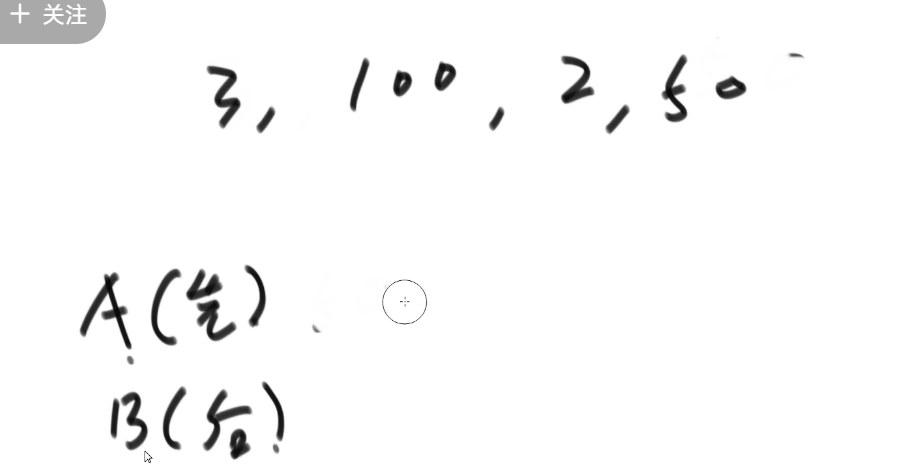 + 关注
3, 100, 2, 50
A(先)
B(后)